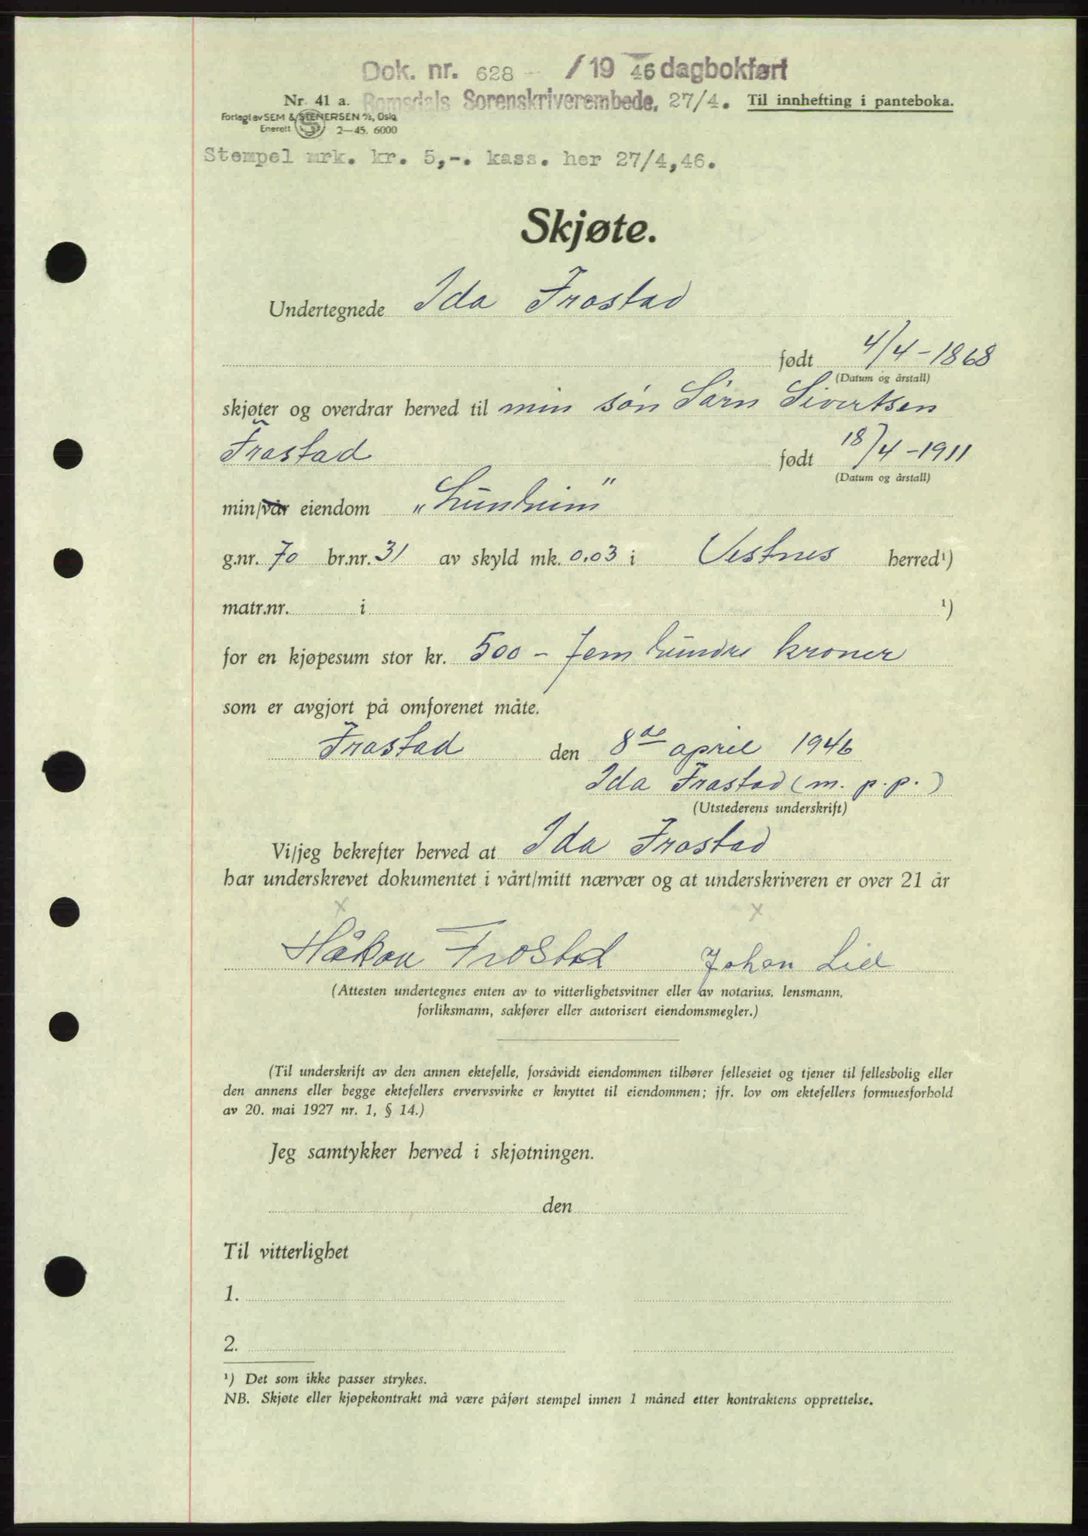 Dok. nr. 628 - /19 46 dagbokført
Nr. 41 a. Romsdals Sorenskriverembede, 27/4. Til innhefting i panteboka.
Forlagt av SEM & STENERSEN A/S, Oslo
Enerett S 2—45. 6000
Stempel mrk. kr. 5,-. kass. her 27/4,46.
Skjøte.
Undertegnede Ida Frostad
født 4/4-1868
(Datum og årstall)
skjøter og overdrar herved til min søn Sørn Sivertsen
Frostad født 18/4-1911
(Datum og årstall)
min/vår eiendom „Lunheim"
g.nr. 70 br.nr. 31 av skyld mk. 0.03 i Vestnes herred¹)
matr.nr. i ¹)
for en kjøpesum stor kr. 500 - fem hundre kroner
som er avgjort på omforenet måte.
Frostad den 8de april 1946
Ida Frostad (m. p. p.)
(Utstederens underskrift)
Vi/jeg bekrefter herved at Ida Frostad
har underskrevet dokumentet i vårt/mitt nærvær og at underskriveren er over 21 år
x x
Håkon Frostad Johan Lid
(Attesten undertegnes enten av to vitterlighetsvitner eller av notarius, lensmann,
forliksmann, sakfører eller autorisert eiendomsmegler.)
(Til underskrift av den annen ektefelle, forsåvidt eiendommen tilhører felleseiet og tjener til fellesbolig eller
den annens eller begge ektefellers ervervsvirke er knyttet til eiendommen; jfr. lov om ektefellers formuesforhold
av 20. mai 1927 nr. 1, § 14.)
Jeg samtykker herved i skjøtningen.
den
Til vitterlighet
1.
2.
¹) Det som ikke passer strykes.
NB. Skjøte eller kjøpekontrakt må være påført stempel innen 1 måned etter kontraktens opprettelse.